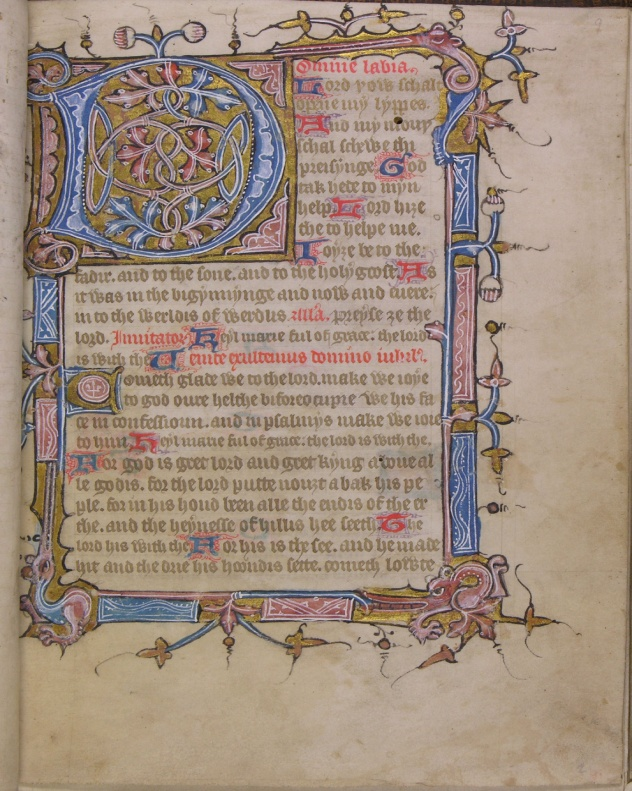 Domine labia.
Lord þow schalt
opene my lyppes.
And my mouþ
schal schewe thi
preisynge. God
tak hede to myn
help. Lord hize
the to helpe me.
Ioyze be to the
fadir. and to the sone. and to the holy goost. As
it was in the bigynnynge and now and euere.
in to the werldis of werldus. alla. preyse ze the
lord. Inuitator. Heyl marie ful of grace. the lord
is with the. Uenite exultemus domino iubil.
Cometh glade we to the lord. make we ioye
to god oure helthe bifore ocupie we his fa
ce in confessioun. and in psalmys make we ioie
to him. Heyl marie ful of grace. the lord is with the.
For god is gret lord and gret kyng aboue al
le godis. for the lord putte nouzt abak his pe
ple. for in his hond been alle the endis of the er
the. and the heynesse of hillus hee seeth. The
lord his with the. For his is the see. and he made
hit and the drie his hoondis sette. cometh lowte